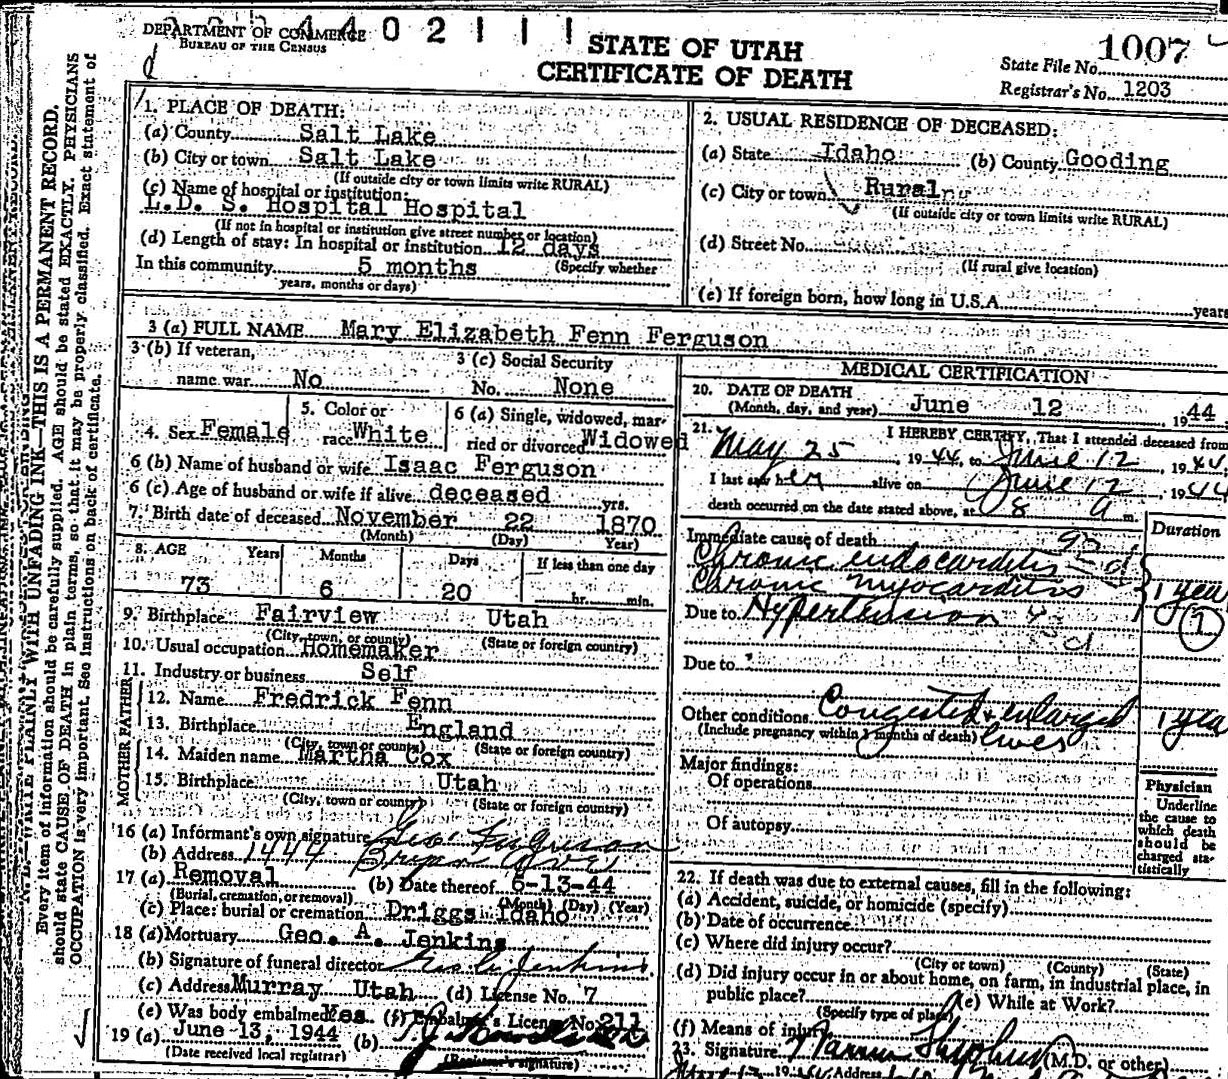 DEPARTMENT OF COMMERCE
BUREAU OF THE CENSUS
4 4 0 2 1 1 1
STATE OF UTAH
CERTIFICATE OF DEATH
State File No. 1007
Registrar's No. 1203
WRITE PLAINLY WITH UNFADING INK—THIS IS A PERMANENT RECORD.
Every item of information should be carefully supplied. AGE should be stated EXACTLY. PHYSICIANS
should state CAUSE OF DEATH in plain terms, so that it may be properly classified. Exact statement of
OCCUPATION is very important. See instructions on back of certificate.
1. PLACE OF DEATH:
(a) County Salt Lake
(b) City or town Salt Lake
(If outside city or town limits write RURAL)
(c) Name of hospital or institution:
L.D. S. Hospital Hospital
(If not in hospital or institution give street number or location)
(d) Length of stay: In hospital or institution 12 days
In this community 5 months (Specify whether
years, months or days)
2. USUAL RESIDENCE OF DECEASED:
(a) State Idaho (b) County Gooding
(c) City or town Rural
(If outside city or town limits write RURAL)
(d) Street No.
(If rural give location)
(e) If foreign born, how long in U.S.A. years
3 (a) FULL NAME Mary Elizabeth Fenn Ferguson
3 (b) If veteran, 3 (c) Social Security
name war No No. None
4. Sex Female 5. Color or race White 6 (a) Single, widowed, married or divorced Widowed
6 (b) Name of husband or wife Isaac Ferguson
6 (c) Age of husband or wife if alive deceased yrs.
7. Birth date of deceased November 22 1870
(Month) (Day) Year)
8. AGE Years Months Days If less than one day
73 6 20 hr. min.
9. Birthplace Fairview Utah
(City, town, or county) (State or foreign country)
10. Usual occupation Homemaker
11. Industry or business Self
FATHER
12. Name Fredrick Fenn
13. Birthplace England
(City, town or county) (State or foreign country)
MOTHER
14. Maiden name Martha Cox
15. Birthplace Utah
(City, town or county) (State or foreign country)
16 (a) Informant's own signature Geo. Ferguson
(b) Address 1444 Bryan Ave
17 (a) Removal (b) Date thereof 6-13-44
(Burial, cremation, or removal) (Month) (Day) (Year)
(c) Place: burial or cremation Driggs Idaho
18 (a) Mortuary Geo. A. Jenkins
(b) Signature of funeral director Jenkins
(c) Address Murray Utah (d) License No. 7
(e) Was body embalmed Yes (f) Embalmer's License No. 211
19 (a) June 13, 1944 (b)
(Date received local registrar) (Registrar's signature)
MEDICAL CERTIFICATION
20. DATE OF DEATH
(Month, day, and year) June 12 1944
21. I HEREBY CERTIFY, That I attended deceased from
May 25, 1944, to June 12, 1944.
I last saw her alive on June 12, 1944
death occurred on the date stated above, at 8 a m.
Immediate cause of death Duration
Chronic endocarditis
Chronic myocarditis 1 year
Due to Hypertension 1
Due to
Other conditions Congested & enlarged 1 year
(Include pregnancy within 3 months of death) liver
Major findings:
Of operations
Of autopsy
Physician
Underline
the cause to
which death
should be
charged sta-
tistically
22. If death was due to external causes, fill in the following:
(a) Accident, suicide, or homicide (specify)
(b) Date of occurrence
(c) Where did injury occur?
(City or town) (County) (State)
(d) Did injury occur in or about home, on farm, in industrial place, in
public place? (e) While at Work?
(Specify type of place)
(f) Means of injury
23. Signature (M.D. or other)
Address